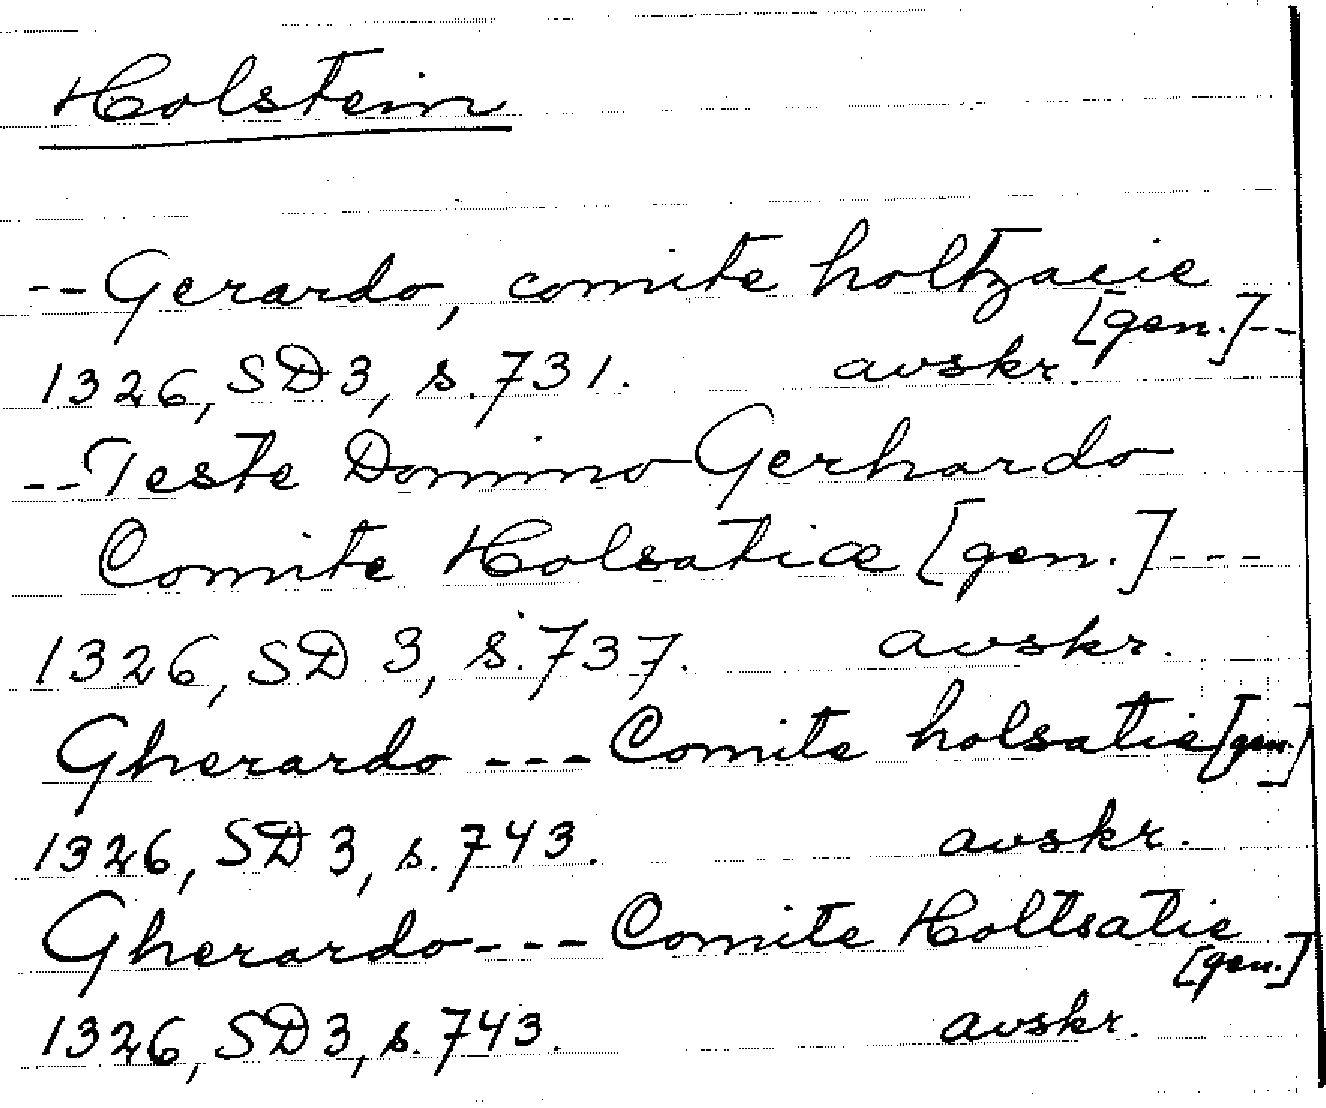 Holstein
--Gerardo, comite holtzacie
[gen.]--
1326, SD 3, s. 731. avskr.
--Teste Domino Gerhardo
Comite Holsatiæ [gen.]---
1326, SD 3, s. 737. avskr.
Gherardo --- Comite holsatie [gen.]
1326, SD 3, s. 743. avskr.
Gherardo --- Comite Holtsatie
[gen.]
1326, SD 3, s. 743. avskr.